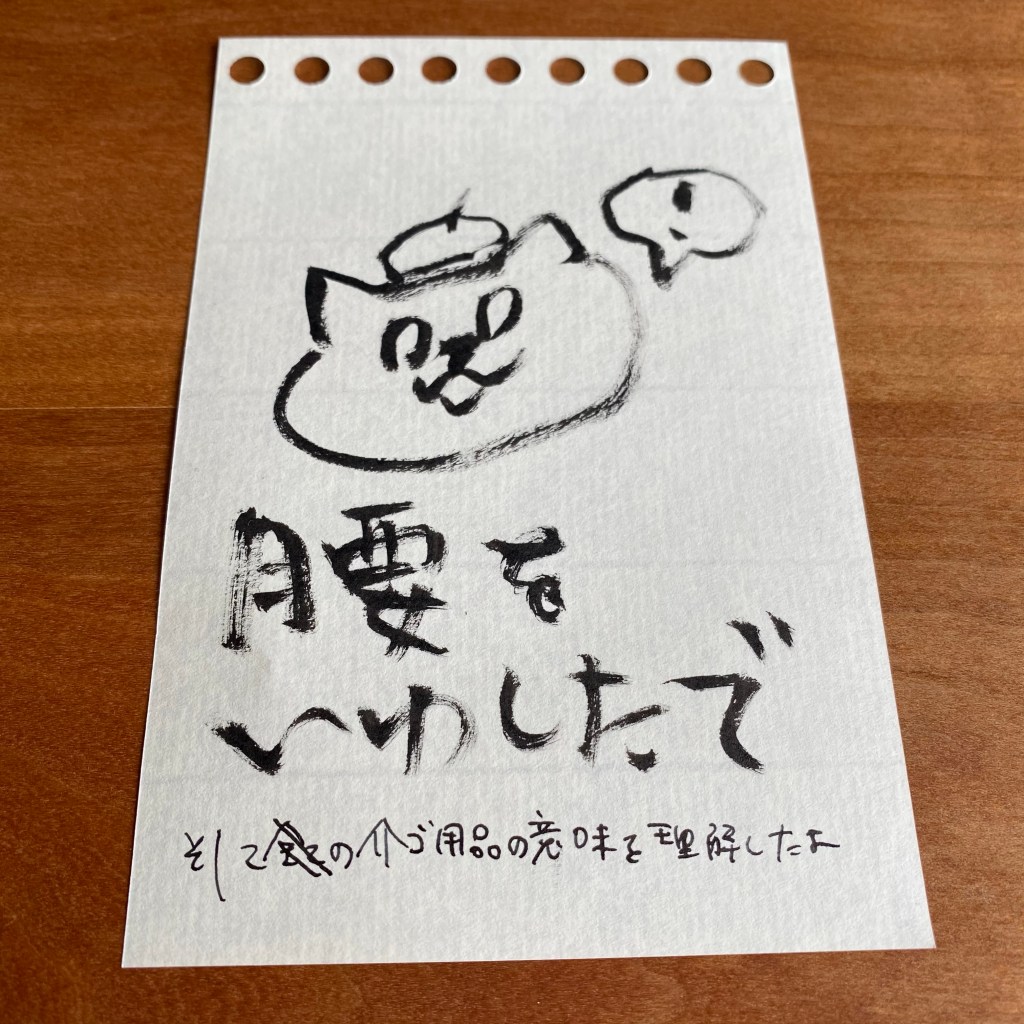 腰を
いわしたで
そしての介ゴ用品の意味を理解したよ